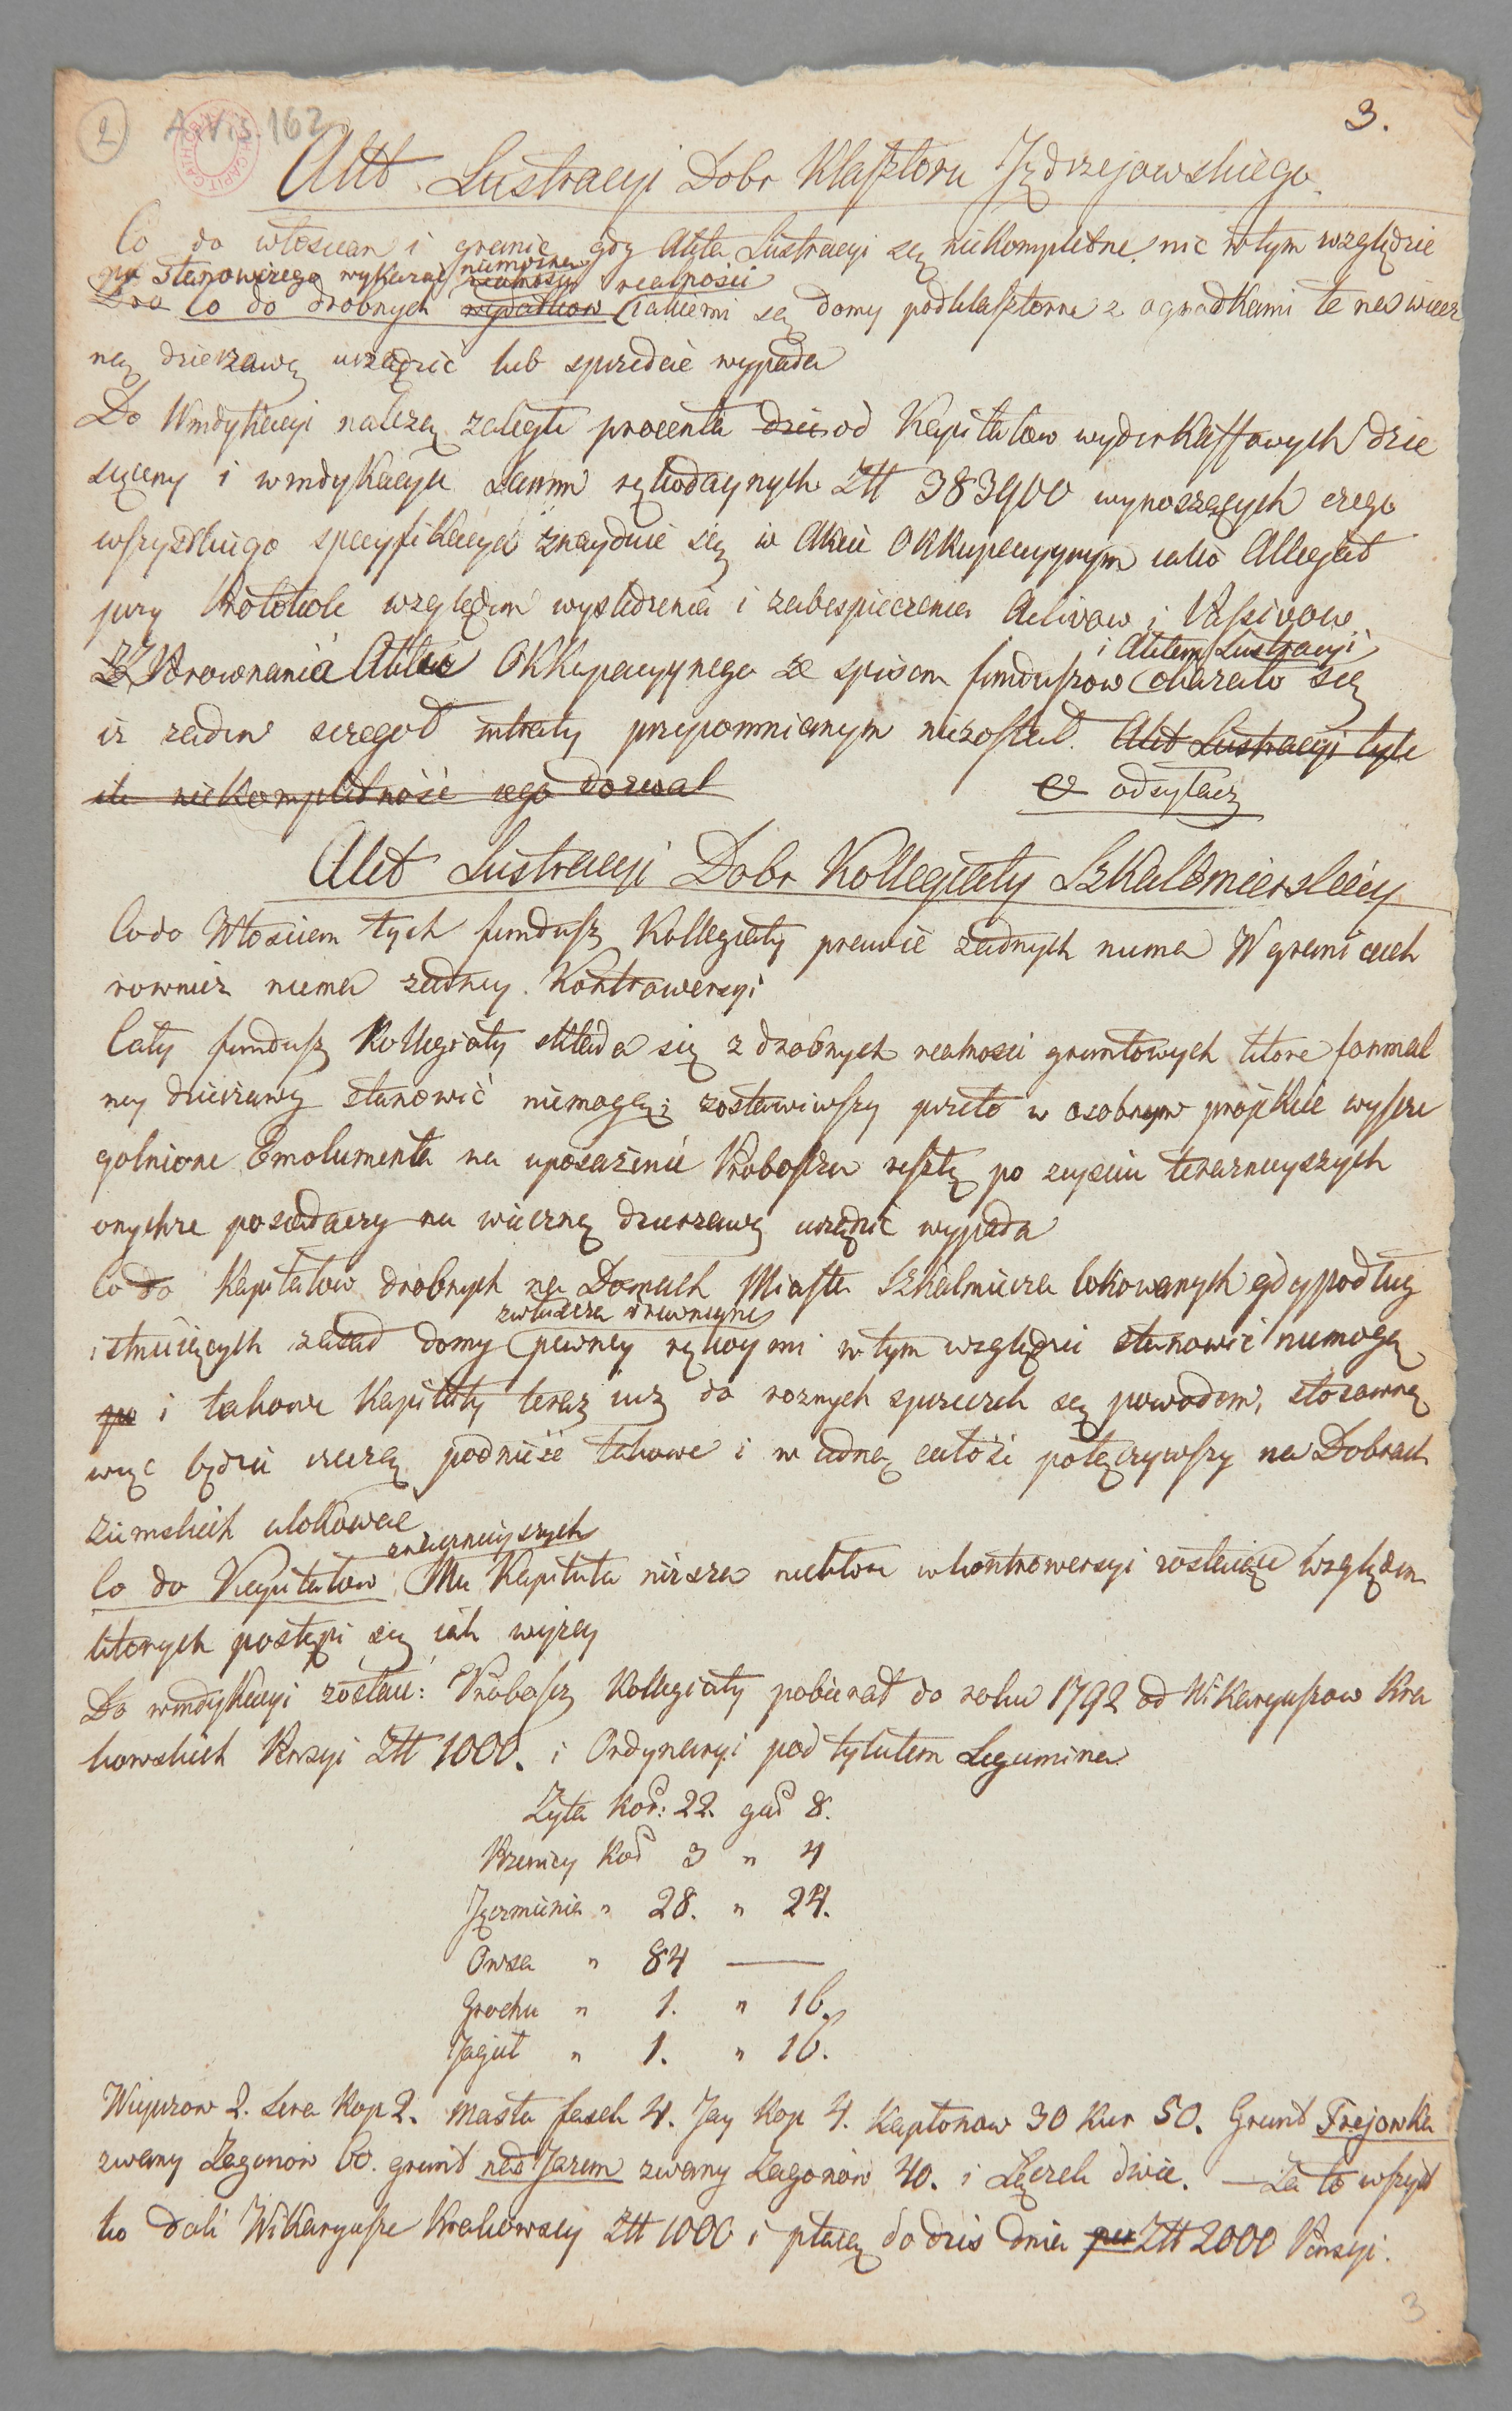 2
A. Vis. 162
3.
Akt Lustracyi Dobr Klasztoru Jędrzejowskiego.
Co do włoscian i granic gdy Akta Lustracyi są niekompletne nic w tym względzie
stanowczego wykazać niemożna
realności
Co do drobnych wydatkow iakiemi są domy podklasztorne z ogrodkami te na wiecz
ną dzierzawę urządzić lub sprzedać wypada
Do Windykacyi należą zaległe procenta od Kapitałow wyderkaffowych dzie
sięciny i windykacya Summ rękodaynych Złł 383900 wynoszących czego
wszystkiego specyfikacya znayduie się w Akcie Okkupacyynym iako Allegat
przy Protokole względem wyśledzenia i zabespieczenia Activow i Passivow.
i Aktem Lustracyi
Z Porownania Aktu Okkupacyynego ze spisem funduszow okazało się
iż żaden szczegoł intraty przepomnianym niezostał. Akt Lustracyi tyle
ile niekompletność iego dozwal
odsyłacz
Akt Lustracyi Dobr Kollegiaty Szkalbmierskiey
Co do Włoscian tych fundusz Kollegiaty prawie żadnych niema W granicach
rownież niema żadney Kontrowersyi
Cały fundusz Kollegiaty składa się z drobnych realnosci gruntowych ktore formal
ney dzierzawy stanowić niemogą; zostawiwszy przeto w osobnym projekcie wyszcze
golnione Emolumenta na uposażenie Proboszcza resztę po zeysciu teraznieyszych
onychże posiadaczy na wieczną dzierzawę urządzić wypada
Co do Kapitałow drobnych na Domach Miasta Szkalmierza lokowanych gdy podług
zwłaszcza drewniane
istnieiących zasad domy pewney rękoymi w tym względzie stanowić niemogą
i takowe Kapitały teraz iuż do roznych sprzeczek są powodem, stosowną
więc będzie rzeczą podnieść takowe i w iedną całość połączywszy na Dobrach
ziemskich ulokować
znacznieyszych
Co do Kapitałow Ma Kapituła niższa niektore w kontrowersyi zostaiące względem
ktorych postąpi się iak wyżey
Do windykacyi zostaie: Proboszcz Kollegiaty pobierał do roku 1792 od Wikaryuszow Kra
kowskich Pensyi Złł 1000. i Ordynaryi pod tytułem Legumina
Żyta Kor: 22. gar 8.
Pszenicy Kor 3 " 4
Jęczmienia " 28. " 24.
Owsa " 84 —
Grochu " 1. " 16.
Jagieł " 1. " 16.
Wieprzow 2. Sera Kop 2. Masła fasek 4. Jay Kop 4. Kapłonow 30 Kur 50. Grunt Frejowka
zwany Zagonow 60. grunt nad Jazem zwany Zagonow 40. i Łączek dwie. — Za to wszyst
ko dali Wikaryusze Krakowscy Złł 1000 i płacą do dzis dnia Złł 2000 Pensyi.
3